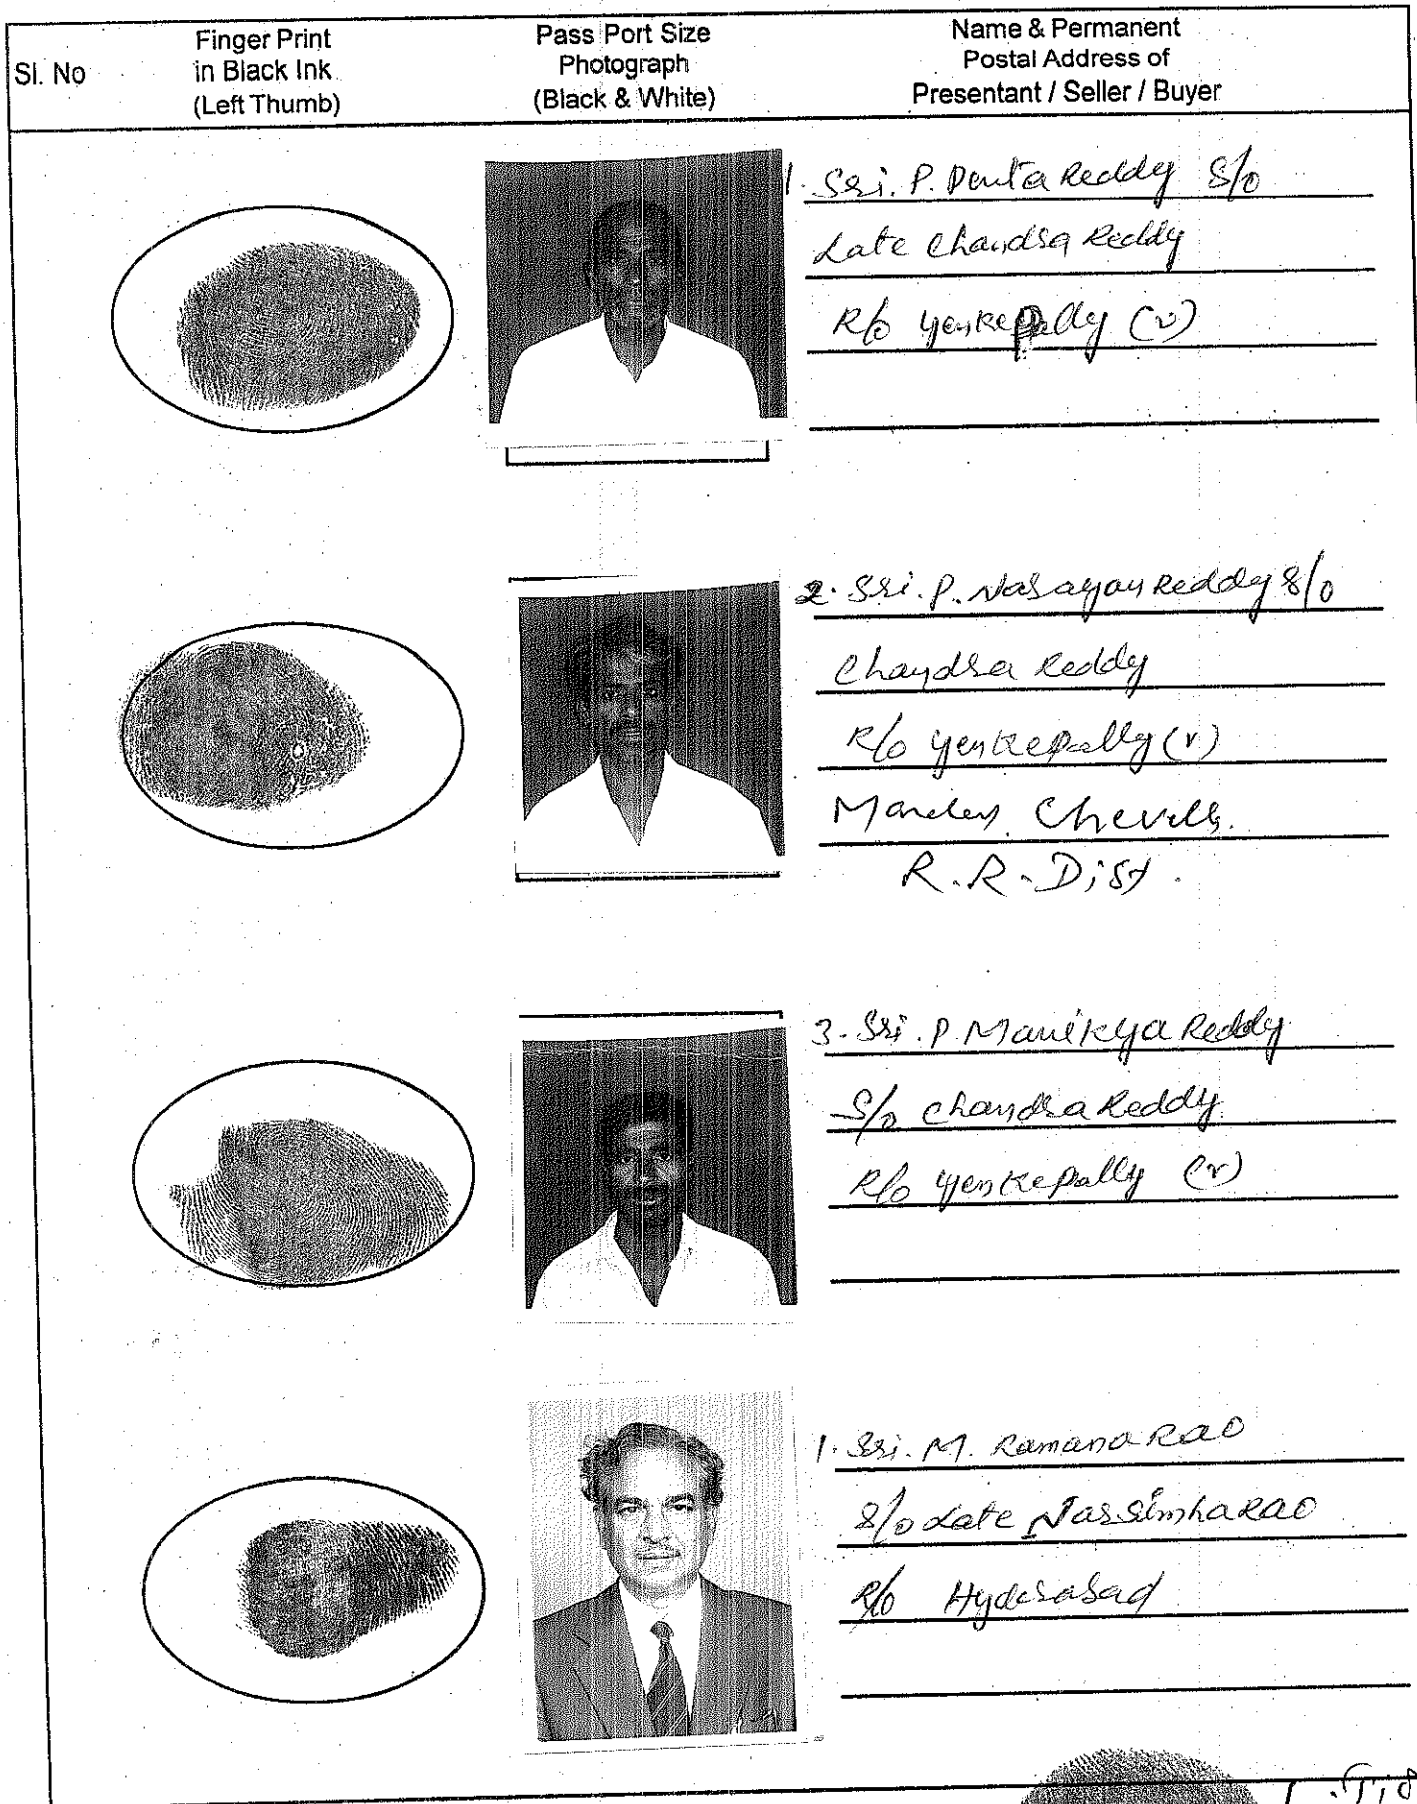 Sl. No
Finger Print
in Black Ink
(Left Thumb)
Pass Port Size
Photograph
(Black & White)
Name & Permanent
Postal Address of
Presentant / Seller / Buyer
1. Sri. P. Penta Reddy S/o
Late Chandra Reddy
R/o Yenkepally (v)
2. Sri. P. Narayan Reddy S/o
Chandra Reddy
R/o Yenkepally (v)
Mandal Chevella
R.R. Dist.
3. Sri. P. Manikya Reddy
S/o Chandra Reddy
R/o Yenkepally (v)
1. Sri. M. Ramana Rao
S/o Late Narsimha Rao
R/o Hyderabad